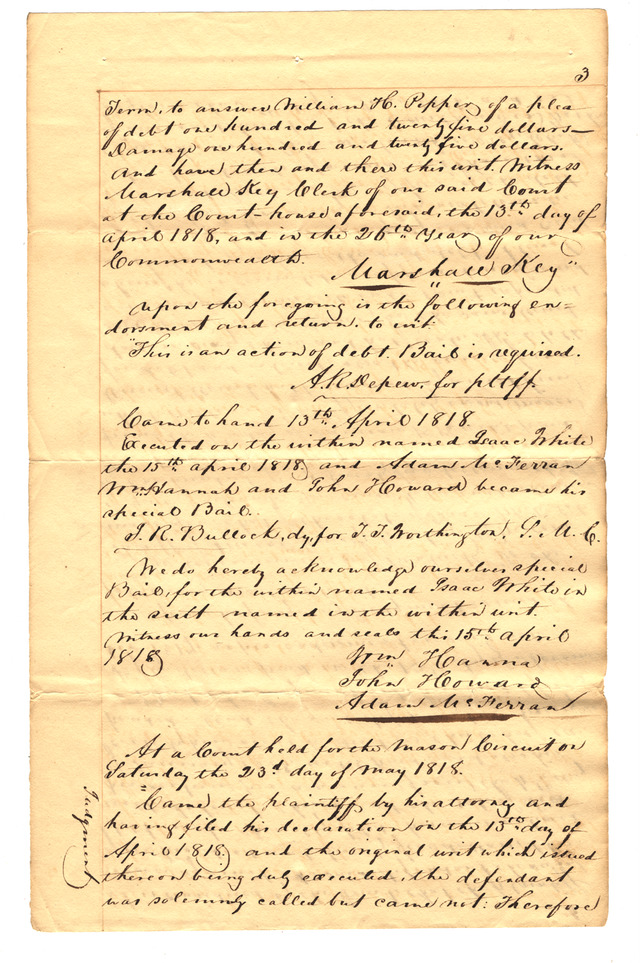 3
Term, to answer William H. Pepper of a plea
of debt one hundred and twenty five dollars—
Damage one hundred and twenty five dollars.
And have then and there this writ. Witness
Marshall Key Clerk of our said Court
at the Court-house aforesaid, the 13th day of
April 1818, and in the 26th Year of our
Commonwealth.
Marshall Key"
Upon the foregoing is the following en-
dorsment and return. to wit.
"This is an action of debt. Bail is required.
A. K. Depew. for pltff
Came to hand 13th. April 1818.
Executed on the within named Isaac White
the 15th april 1818. and Adam McFerran
Wm. Hannah and John Howard became his
special Bail.
J. R. Bullock, dy, for T. T. Worthington, S. M. C.
We do hereby acknowledge ourselves special
Bail, for the within named Isaac White in
the suit named in the within writ
Witness our hands and seals this 15th April
1818
Wm Hanna
John Howard
Adam McFerran
At a Court held for the Mason Circuit on
Saturday the 23d day of May 1818.
Judgment
Came the plaintiff by his attorney and
having filed his declaration on the 13th day of
April 1818. and the original writ which issued
thereon being duly executed, the defendant
was solemnly called but came not: Therefore